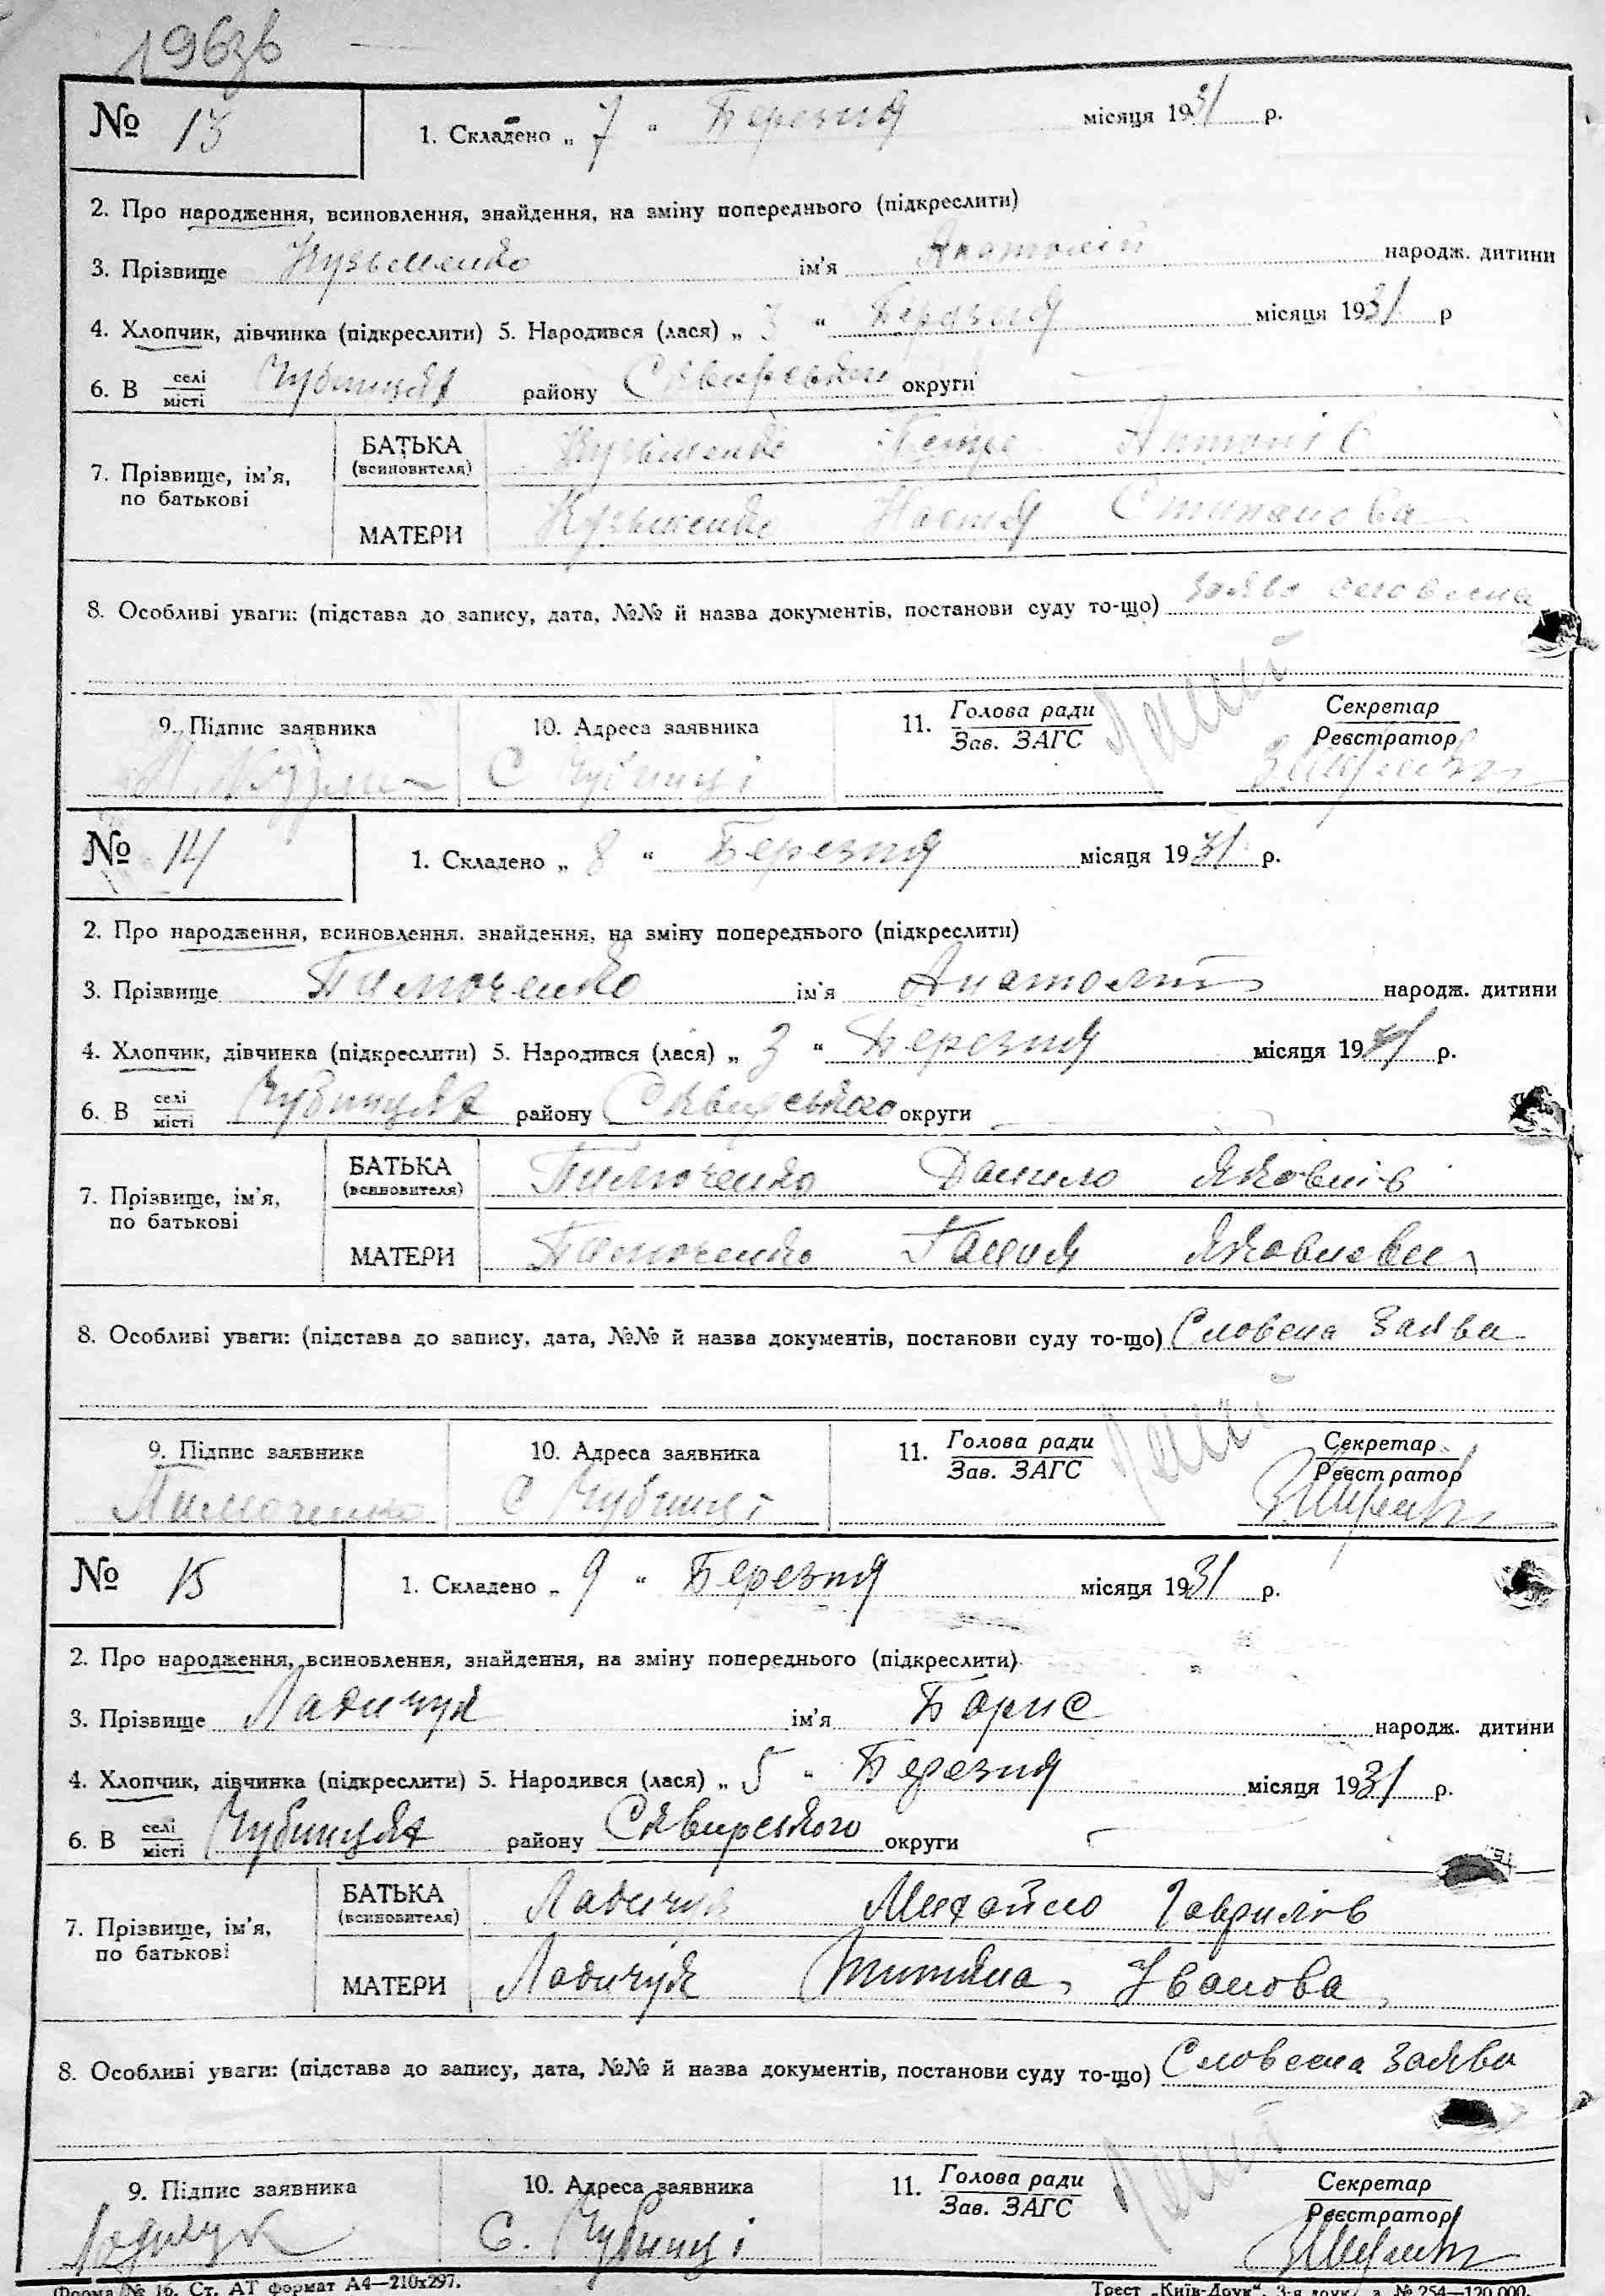 196зв
№ 13
1. Складено „ 7 “ Березня місяця 1931 р.
2. Про народження, всиновлення, знайдення, на зміну попереднього (підкреслити)
3. Прізвище Кузьменко ім'я Анатолій народж. дитини
4. Хлопчик, дівчинка (підкреслити) 5. Народився (лася) „ 3 “ Березня місяця 1931 р
6. В селі/місті Чубинцях району Сквирського округи
7. Прізвище, ім'я, по батькові
БАТЬКА (всиновителя) Кузьменко Петро Антонів
МАТЕРИ Кузьменко Настя Степанова
8. Особливі уваги: (підстава до запису, дата, №№ й назва документів, постанови суду то-що) Заява словесна
9. Підпис заявника
10. Адреса заявника С Чубинці
11. Голова ради/Зав. ЗАГС
Секретар/Реєстратор
№ 14
1. Складено „ 8 “ Березня місяця 1931 р.
2. Про народження, всиновлення, знайдення, на зміну попереднього (підкреслити)
3. Прізвище Тимоченко ім'я Анатолій народж. дитини
4. Хлопчик, дівчинка (підкреслити) 5. Народився (лася) „ 3 “ Березня місяця 1931 р.
6. В селі/місті Чубинцях району Сквирського округи
7. Прізвище, ім'я, по батькові
БАТЬКА (всиновителя) Тимоченко Данило Яковлів
МАТЕРИ Тимоченко Ганна Яковлева
8. Особливі уваги: (підстава до запису, дата, №№ й назва документів, постанови суду то-що) Словесна Заява
9. Підпис заявника Тимоченко
10. Адреса заявника С Чубинці
11. Голова ради/Зав. ЗАГС
Секретар/Реєстратор
№ 15
1. Складено „ 9 “ Березня місяця 1931 р.
2. Про народження, всиновлення, знайдення, на зміну попереднього (підкреслити)
3. Прізвище Ладичук ім'я Борис народж. дитини
4. Хлопчик, дівчинка (підкреслити) 5. Народився (лася) „ 5 “ Березня місяця 1931 р.
6. В селі/місті Чубинцях району Сквирського округи
7. Прізвище, ім'я, по батькові
БАТЬКА (всиновителя) Ладичук Михайло Гаврилів
МАТЕРИ Ладичук Титяна Іванова
8. Особливі уваги: (підстава до запису, дата, №№ й назва документів, постанови суду то-що) Словесна Заява
9. Підпис заявника Ладичук
10. Адреса заявника С. Чубинці
11. Голова ради/Зав. ЗАГС
Секретар/Реєстратор
Форма № 16. Ст. АТ формат А4—210х297.
Трест „Київ-Друк“, 3-я друк. з. № 254—120.000.